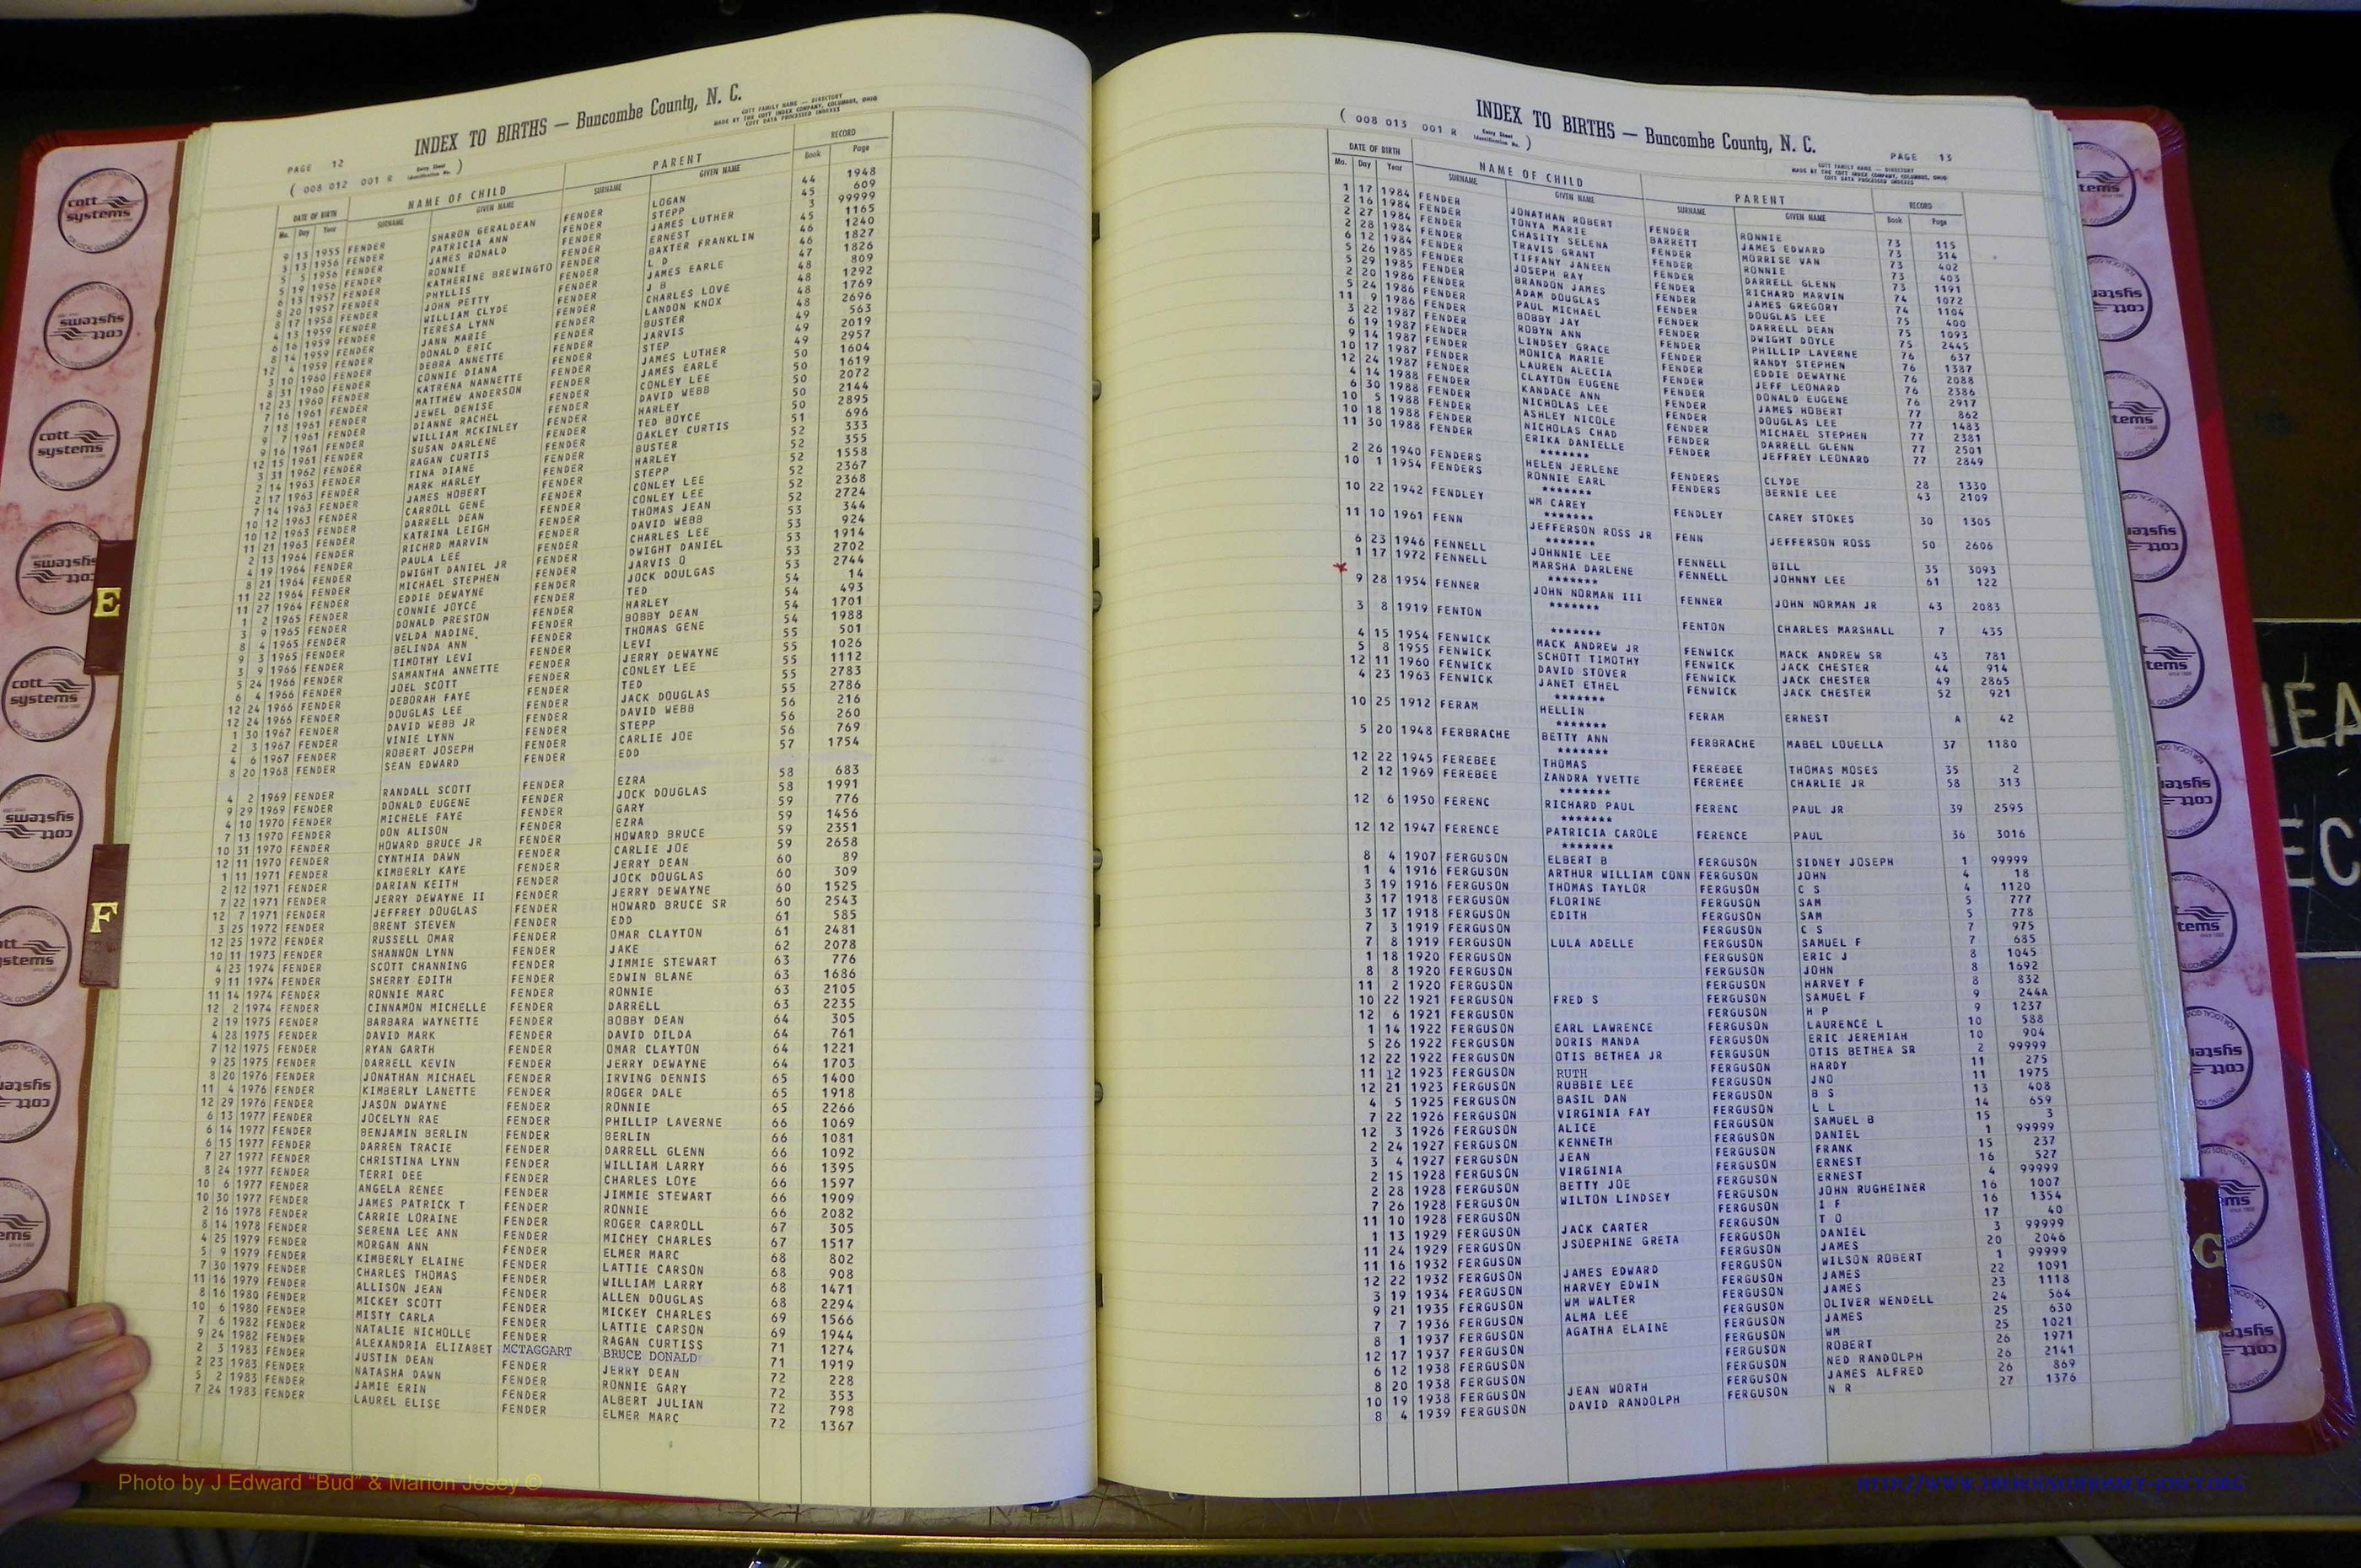 INDEX TO BIRTHS — Buncombe County, N. C.
COTT FAMILY NAME — DIRECTORY
MADE BY THE COTT INDEX COMPANY, COLUMBUS, OHIO
COTT DATA PROCESSED INDEXES
PAGE 12
( 008 012 001 R Entry Sheet Identification No. )
DATE OF BIRTH NAME OF CHILD PARENT RECORD
Mo. Day Year SURNAME GIVEN NAME SURNAME GIVEN NAME Book Page
9 13 1955 FENDER SHARON GERALDEAN FENDER LOGAN 44 1948
3 13 1956 FENDER PATRICIA ANN FENDER STEPP 45 609
5 5 1956 FENDER JAMES RONALD FENDER JAMES LUTHER 3 99999
5 19 1956 FENDER RONNIE FENDER ERNEST 45 1165
6 13 1957 FENDER KATHERINE BREWINGTO FENDER BAXTER FRANKLIN 46 1240
8 20 1957 FENDER PHYLLIS FENDER L D 46 1827
8 17 1958 FENDER JOHN PETTY FENDER JAMES EARLE 47 1826
4 13 1959 FENDER WILLIAM CLYDE FENDER J B 48 809
6 16 1959 FENDER TERESA LYNN FENDER CHARLES LOVE 48 1292
8 14 1959 FENDER JANN MARIE FENDER LANDON KNOX 48 1769
12 4 1959 FENDER DONALD ERIC FENDER BUSTER 48 2696
3 10 1960 FENDER DEBRA ANNETTE FENDER JARVIS 49 563
8 31 1960 FENDER CONNIE DIANA FENDER STEP 49 2019
12 23 1960 FENDER KATRENA NANNETTE FENDER JAMES LUTHER 49 2957
7 16 1961 FENDER MATTHEW ANDERSON FENDER JAMES EARLE 50 1604
7 18 1961 FENDER JEWEL DENISE FENDER CONLEY LEE 50 1619
9 7 1961 FENDER DIANNE RACHEL FENDER DAVID WEBB 50 2072
9 16 1961 FENDER WILLIAM MCKINLEY FENDER HARLEY 50 2144
12 15 1961 FENDER SUSAN DARLENE FENDER TED BOYCE 50 2895
3 31 1962 FENDER RAGAN CURTIS FENDER OAKLEY CURTIS 51 696
2 14 1963 FENDER TINA DIANE FENDER BUSTER 52 333
2 17 1963 FENDER MARK HARLEY FENDER HARLEY 52 355
7 14 1963 FENDER JAMES HOBERT FENDER STEPP 52 1558
10 12 1963 FENDER CARROLL GENE FENDER CONLEY LEE 52 2367
10 12 1963 FENDER DARRELL DEAN FENDER CONLEY LEE 52 2368
11 21 1963 FENDER KATRINA LEIGH FENDER THOMAS JEAN 52 2724
2 13 1964 FENDER RICHRD MARVIN FENDER DAVID WEBB 53 344
4 19 1964 FENDER PAULA LEE FENDER CHARLES LEE 53 924
8 21 1964 FENDER DWIGHT DANIEL JR FENDER DWIGHT DANIEL 53 1914
11 22 1964 FENDER MICHAEL STEPHEN FENDER JARVIS O 53 2702
11 27 1964 FENDER EDDIE DEWAYNE FENDER JOCK DOULGAS 53 2744
1 2 1965 FENDER CONNIE JOYCE FENDER TED 54 14
3 9 1965 FENDER DONALD PRESTON FENDER HARLEY 54 493
8 4 1965 FENDER VELDA NADINE FENDER BOBBY DEAN 54 1701
9 3 1965 FENDER BELINDA ANN FENDER THOMAS GENE 54 1988
3 9 1966 FENDER TIMOTHY LEVI FENDER LEVI 55 501
5 24 1966 FENDER SAMANTHA ANNETTE FENDER JERRY DEWAYNE 55 1026
6 4 1966 FENDER JOEL SCOTT FENDER CONLEY LEE 55 1112
12 24 1966 FENDER DEBORAH FAYE FENDER TED 55 2783
12 24 1966 FENDER DOUGLAS LEE FENDER JACK DOUGLAS 55 2786
1 30 1967 FENDER DAVID WEBB JR FENDER DAVID WEBB 56 216
2 3 1967 FENDER VINIE LYNN FENDER STEPP 56 260
4 6 1967 FENDER ROBERT JOSEPH FENDER CARLIE JOE 56 769
8 20 1968 FENDER SEAN EDWARD FENDER EDD 57 1754
4 2 1969 FENDER RANDALL SCOTT FENDER EZRA 58 683
9 29 1969 FENDER DONALD EUGENE FENDER JOCK DOUGLAS 58 1991
4 10 1970 FENDER MICHELE FAYE FENDER GARY 59 776
7 13 1970 FENDER DON ALISON FENDER EZRA 59 1456
10 31 1970 FENDER HOWARD BRUCE JR FENDER HOWARD BRUCE 59 2351
12 11 1970 FENDER CYNTHIA DAWN FENDER CARLIE JOE 59 2658
1 11 1971 FENDER KIMBERLY KAYE FENDER JERRY DEAN 60 89
2 12 1971 FENDER DARIAN KEITH FENDER JOCK DOUGLAS 60 309
7 22 1971 FENDER JERRY DEWAYNE II FENDER JERRY DEWAYNE 60 1525
12 7 1971 FENDER JEFFREY DOUGLAS FENDER HOWARD BRUCE SR 60 2543
3 25 1972 FENDER BRENT STEVEN FENDER EDD 61 585
12 25 1972 FENDER RUSSELL OMAR FENDER OMAR CLAYTON 61 2481
10 11 1973 FENDER SHANNON LYNN FENDER JAKE 62 2078
4 23 1974 FENDER SCOTT CHANNING FENDER JIMMIE STEWART 63 776
9 11 1974 FENDER SHERRY EDITH FENDER EDWIN BLANE 63 1686
11 14 1974 FENDER RONNIE MARC FENDER RONNIE 63 2105
12 2 1974 FENDER CINNAMON MICHELLE FENDER DARRELL 63 2235
2 19 1975 FENDER BARBARA WAYNETTE FENDER BOBBY DEAN 64 305
4 28 1975 FENDER DAVID MARK FENDER DAVID DILDA 64 761
7 12 1975 FENDER RYAN GARTH FENDER OMAR CLAYTON 64 1221
9 25 1975 FENDER DARRELL KEVIN FENDER JERRY DEWAYNE 64 1703
8 20 1976 FENDER JONATHAN MICHAEL FENDER IRVING DENNIS 65 1400
11 4 1976 FENDER KIMBERLY LANETTE FENDER ROGER DALE 65 1918
12 29 1976 FENDER JASON DWAYNE FENDER RONNIE 65 2266
6 13 1977 FENDER JOCELYN RAE FENDER PHILLIP LAVERNE 66 1069
6 14 1977 FENDER BENJAMIN BERLIN FENDER BERLIN 66 1081
6 15 1977 FENDER DARREN TRACIE FENDER DARRELL GLENN 66 1092
7 27 1977 FENDER CHRISTINA LYNN FENDER WILLIAM LARRY 66 1395
8 24 1977 FENDER TERRI DEE FENDER CHARLES LOYE 66 1597
10 6 1977 FENDER ANGELA RENEE FENDER JIMMIE STEWART 66 1909
10 30 1977 FENDER JAMES PATRICK T FENDER RONNIE 66 2082
2 16 1978 FENDER CARRIE LORAINE FENDER ROGER CARROLL 67 305
8 14 1978 FENDER SERENA LEE ANN FENDER MICHEY CHARLES 67 1517
4 25 1979 FENDER MORGAN ANN FENDER ELMER MARC 68 802
5 9 1979 FENDER KIMBERLY ELAINE FENDER LATTIE CARSON 68 908
7 30 1979 FENDER CHARLES THOMAS FENDER WILLIAM LARRY 68 1471
11 16 1979 FENDER ALLISON JEAN FENDER ALLEN DOUGLAS 68 2294
8 16 1980 FENDER MICKEY SCOTT FENDER MICKEY CHARLES 69 1566
10 6 1980 FENDER MISTY CARLA FENDER LATTIE CARSON 69 1944
7 6 1982 FENDER NATALIE NICHOLLE FENDER RAGAN CURTISS 71 1274
9 24 1982 FENDER ALEXANDRIA ELIZABET MCTAGGART BRUCE DONALD 71 1919
2 3 1983 FENDER JUSTIN DEAN FENDER JERRY DEAN 72 228
2 23 1983 FENDER NATASHA DAWN FENDER RONNIE GARY 72 353
5 2 1983 FENDER JAMIE ERIN FENDER ALBERT JULIAN 72 798
7 24 1983 FENDER LAUREL ELISE FENDER ELMER MARC 72 1367
INDEX TO BIRTHS — Buncombe County, N. C.
( 008 013 001 R Entry Sheet Identification No. )
PAGE 13
COTT FAMILY NAME — DIRECTORY
MADE BY THE COTT INDEX COMPANY, COLUMBUS, OHIO
COTT DATA PROCESSED INDEXES
DATE OF BIRTH NAME OF CHILD PARENT RECORD
Mo. Day Year SURNAME GIVEN NAME SURNAME GIVEN NAME Book Page
1 17 1984 FENDER JONATHAN ROBERT FENDER RONNIE 73 115
2 16 1984 FENDER TONYA MARIE BARRETT JAMES EDWARD 73 314
2 27 1984 FENDER CHASITY SELENA FENDER MORRISE VAN 73 402
2 28 1984 FENDER TRAVIS GRANT FENDER RONNIE 73 403
6 12 1984 FENDER TIFFANY JANEEN FENDER DARRELL GLENN 73 1191
5 26 1985 FENDER JOSEPH RAY FENDER RICHARD MARVIN 74 1072
5 29 1985 FENDER BRANDON JAMES FENDER JAMES GREGORY 74 1104
2 20 1986 FENDER ADAM DOUGLAS FENDER DOUGLAS LEE 75 400
5 24 1986 FENDER PAUL MICHAEL FENDER DARRELL DEAN 75 1093
11 9 1986 FENDER BOBBY JAY FENDER DWIGHT DOYLE 75 2445
3 22 1987 FENDER ROBYN ANN FENDER PHILLIP LAVERNE 76 637
6 19 1987 FENDER LINDSEY GRACE FENDER RANDY STEPHEN 76 1387
9 14 1987 FENDER MONICA MARIE FENDER EDDIE DEWAYNE 76 2088
10 17 1987 FENDER LAUREN ALECIA FENDER JEFF LEONARD 76 2386
12 24 1987 FENDER CLAYTON EUGENE FENDER DONALD EUGENE 76 2917
4 14 1988 FENDER KANDACE ANN FENDER JAMES HOBERT 77 862
6 30 1988 FENDER NICHOLAS LEE FENDER DOUGLAS LEE 77 1483
10 5 1988 FENDER ASHLEY NICOLE FENDER MICHAEL STEPHEN 77 2381
10 18 1988 FENDER NICHOLAS CHAD FENDER DARRELL GLENN 77 2501
11 30 1988 FENDER ERIKA DANIELLE FENDER JEFFREY LEONARD 77 2849
*******
2 26 1940 FENDERS HELEN JERLENE FENDERS CLYDE 28 1330
10 1 1954 FENDERS RONNIE EARL FENDERS BERNIE LEE 43 2109
*******
10 22 1942 FENDLEY WM CAREY FENDLEY CAREY STOKES 30 1305
*******
11 10 1961 FENN JEFFERSON ROSS JR FENN JEFFERSON ROSS 50 2606
*******
6 23 1946 FENNELL JOHNNIE LEE FENNELL BILL 35 3093
1 17 1972 FENNELL MARSHA DARLENE FENNELL JOHNNY LEE 61 122
*******
9 28 1954 FENNER JOHN NORMAN III FENNER JOHN NORMAN JR 43 2083
*******
3 8 1919 FENTON FENTON CHARLES MARSHALL 7 435
*******
4 15 1954 FENWICK MACK ANDREW JR FENWICK MACK ANDREW SR 43 781
5 8 1955 FENWICK SCHOTT TIMOTHY FENWICK JACK CHESTER 44 914
12 11 1960 FENWICK DAVID STOVER FENWICK JACK CHESTER 49 2865
4 23 1963 FENWICK JANET ETHEL FENWICK JACK CHESTER 52 921
*******
10 25 1912 FERAM HELLIN FERAM ERNEST A 42
*******
5 20 1948 FERBRACHE BETTY ANN FERBRACHE MABEL LOUELLA 37 1180
*******
12 22 1945 FEREBEE THOMAS FEREBEE THOMAS MOSES 35 2
2 12 1969 FEREBEE ZANDRA YVETTE FEREHEE CHARLIE JR 58 313
*******
12 6 1950 FERENC RICHARD PAUL FERENC PAUL JR 39 2595
*******
12 12 1947 FERENCE PATRICIA CAROLE FERENCE PAUL 36 3016
*******
8 4 1907 FERGUSON ELBERT B FERGUSON SIDNEY JOSEPH 1 99999
1 4 1916 FERGUSON ARTHUR WILLIAM CONN FERGUSON JOHN 4 18
3 19 1916 FERGUSON THOMAS TAYLOR FERGUSON C S 4 1120
3 17 1918 FERGUSON FLORINE FERGUSON SAM 5 777
3 17 1918 FERGUSON EDITH FERGUSON SAM 5 778
7 3 1919 FERGUSON FERGUSON C S 7 975
7 8 1919 FERGUSON LULA ADELLE FERGUSON SAMUEL F 7 685
1 18 1920 FERGUSON FERGUSON ERIC J 8 1045
8 8 1920 FERGUSON FERGUSON JOHN 8 1692
11 2 1920 FERGUSON FERGUSON HARVEY F 8 832
10 22 1921 FERGUSON FRED S FERGUSON SAMUEL F 9 244A
12 6 1921 FERGUSON FERGUSON H P 9 1237
1 14 1922 FERGUSON EARL LAWRENCE FERGUSON LAURENCE L 10 588
5 26 1922 FERGUSON DORIS MANDA FERGUSON ERIC JEREMIAH 10 904
12 22 1922 FERGUSON OTIS BETHEA JR FERGUSON OTIS BETHEA SR 2 99999
11 12 1923 FERGUSON RUTH FERGUSON HARDY 11 275
12 21 1923 FERGUSON RUBBIE LEE FERGUSON JNO 11 1975
4 5 1925 FERGUSON BASIL DAN FERGUSON B S 13 408
7 22 1926 FERGUSON VIRGINIA FAY FERGUSON L L 14 659
12 3 1926 FERGUSON ALICE FERGUSON SAMUEL B 15 3
2 24 1927 FERGUSON KENNETH FERGUSON DANIEL 1 99999
3 4 1927 FERGUSON JEAN FERGUSON FRANK 15 237
2 15 1928 FERGUSON VIRGINIA FERGUSON ERNEST 16 527
2 28 1928 FERGUSON BETTY JOE FERGUSON ERNEST 4 99999
7 26 1928 FERGUSON WILTON LINDSEY FERGUSON JOHN RUGHEINER 16 1007
11 10 1928 FERGUSON FERGUSON I F 16 1354
1 13 1929 FERGUSON JACK CARTER FERGUSON T O 17 40
11 24 1929 FERGUSON JSOEPHINE GRETA FERGUSON DANIEL 3 99999
11 16 1932 FERGUSON FERGUSON JAMES 20 2046
12 22 1932 FERGUSON JAMES EDWARD FERGUSON WILSON ROBERT 1 99999
3 19 1934 FERGUSON HARVEY EDWIN FERGUSON JAMES 22 1091
9 21 1935 FERGUSON WM WALTER FERGUSON JAMES 23 1118
7 7 1936 FERGUSON ALMA LEE FERGUSON OLIVER WENDELL 24 564
8 1 1937 FERGUSON AGATHA ELAINE FERGUSON JAMES 25 630
12 17 1937 FERGUSON FERGUSON WM 25 1021
6 12 1938 FERGUSON FERGUSON ROBERT 26 1971
8 20 1938 FERGUSON FERGUSON NED RANDOLPH 26 2141
10 19 1938 FERGUSON JEAN WORTH FERGUSON JAMES ALFRED 26 869
8 4 1939 FERGUSON DAVID RANDOLPH FERGUSON N R 27 1376
E
F
G
cott systems
Photo by J Edward “Bud” & Marion Josey ©